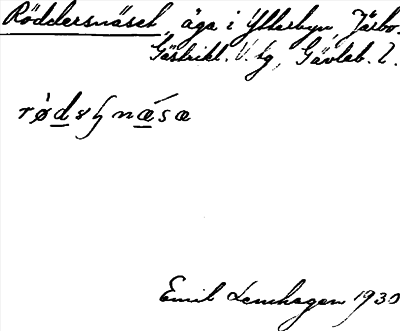 Röddersnäset, äga i Ytterbyn, Järbo.
Gästrikl. V. tg, Gävleb. l.
Emil Lenhagen 1930